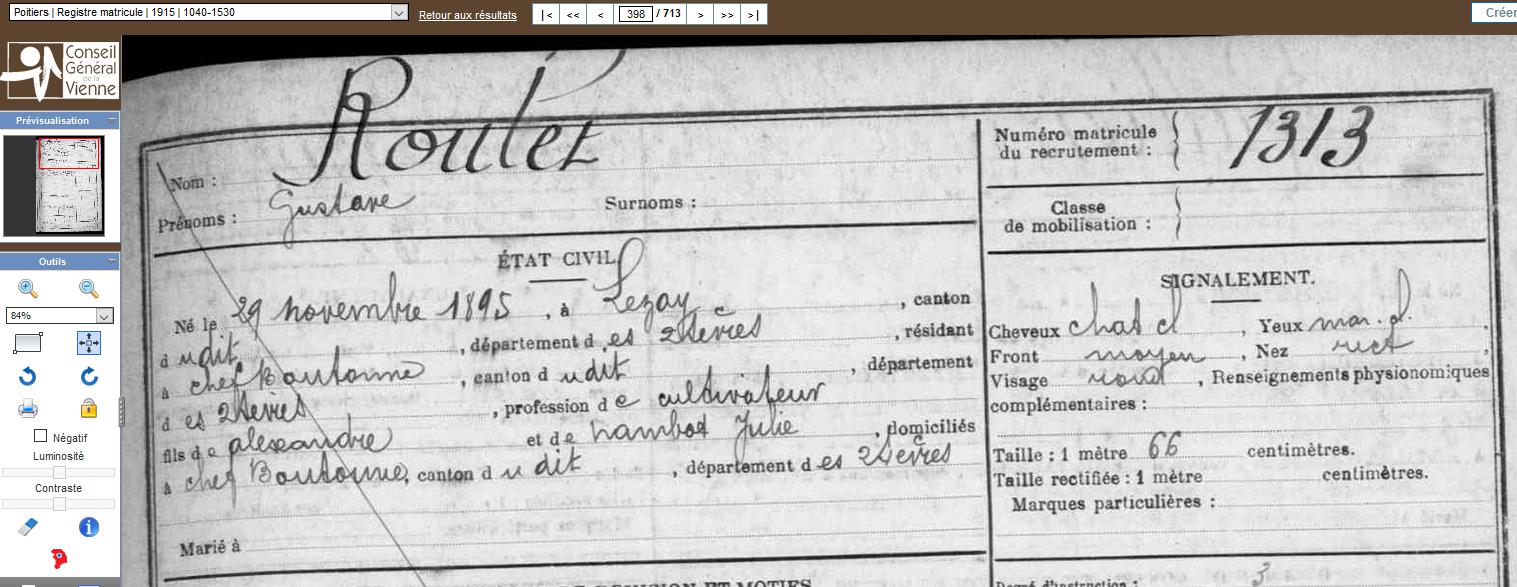 Poitiers | Registre matricule | 1915 | 1040-1530
Retour aux résultats
|< << < 398 / 713 > >> >|
Créer
Conseil
Général
de la
Vienne
Prévisualisation
Outils
84%
Négatif
Luminosité
Contraste
Nom : Roulet
Prénoms : Gustave Surnoms :
Numéro matricule
du recrutement : 1313
Classe
de mobilisation :
ÉTAT CIVIL.
Né le 29 novembre 1895, à Lezay, canton
d udit, département des 2 Sèvres, résidant
à chef Boutonne, canton d udit, département
d es 2 Sèvres, profession de cultivateur
fils de alexandre et de Julie, domiciliés
à chef Boutonne, canton d u dit, département d es 2 Sèvres
Marié à
SIGNALEMENT.
Cheveux chat cl, Yeux mar. cl.
Front moyen, Nez rect
Visage rond, Renseignements physionomiques
complémentaires :
Taille : 1 mètre 66 centimètres.
Taille rectifiée : 1 mètre centimètres.
Marques particulières :
ET MOTIFS
Degré d'instruction : 3